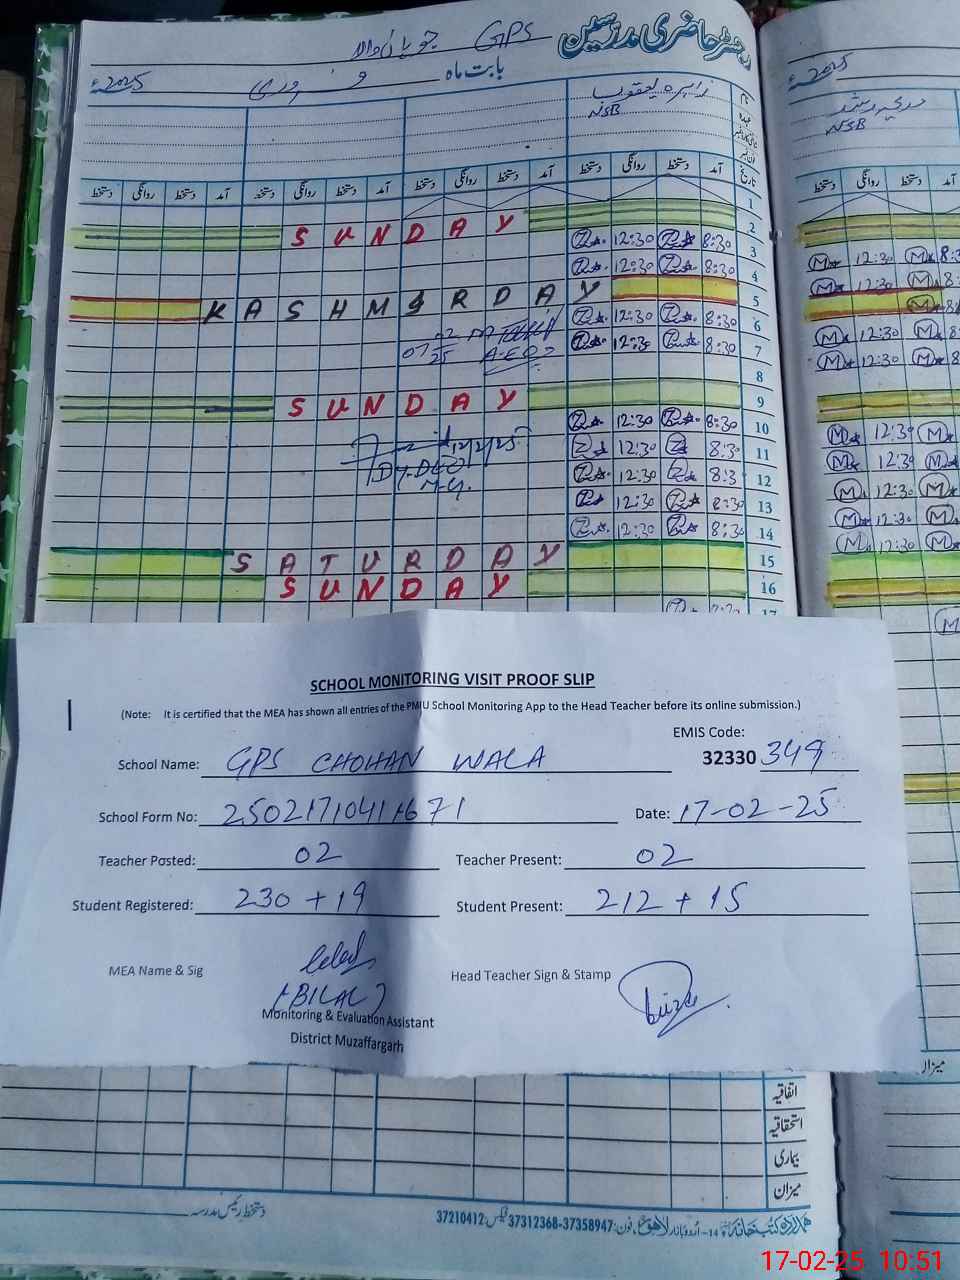 رجسٹر حاضری مدرسین
GPS چوہان والا
بابت ماہ فروری 2025ء
2025ء
زاہرہ یعقوب
NSB
NSB
نام
عہدہ
تاریخ آمد دستخط روانگی دستخط آمد دستخط روانگی دستخط آمد دستخط روانگی دستخط
آمد دستخط روانگی دستخط
1
SUNDAY 2
12:30 8:30 3
12:30 8:30 4
KASHMIR DAY 5
12:30 8:30 6
12:30 8:30 7
07 02 25
8
SUNDAY 9
12:30 8:30 10
12/2/25 12:30 8:30 11
12:30 8:3 12
12:30 8:30 13
12:30 8:30 14
SATURDAY 15
SUNDAY 16
SCHOOL MONITORING VISIT PROOF SLIP
(Note: It is certified that the MEA has shown all entries of the PMIU School Monitoring App to the Head Teacher before its online submission.)
EMIS Code:
School Name: GPS CHOHAN WALA 32330 349
School Form No: 2502171041671 Date: 17-02-25
Teacher Posted: 02 Teacher Present: 02
Student Registered: 230 + 19 Student Present: 212 + 15
MEA Name & Sig Head Teacher Sign & Stamp
(BILAL)
Monitoring & Evaluation Assistant
District Muzaffargarh
میزان
اتفاقیہ
استحقاقیہ
بیماری
میزان
دستخط رئیس مدرسہ
ہمدرد کتب خانہ 14-اردو بازار لاہور فون: 37312368-37358947 فیکس: 37210412
17-02-25 10:51